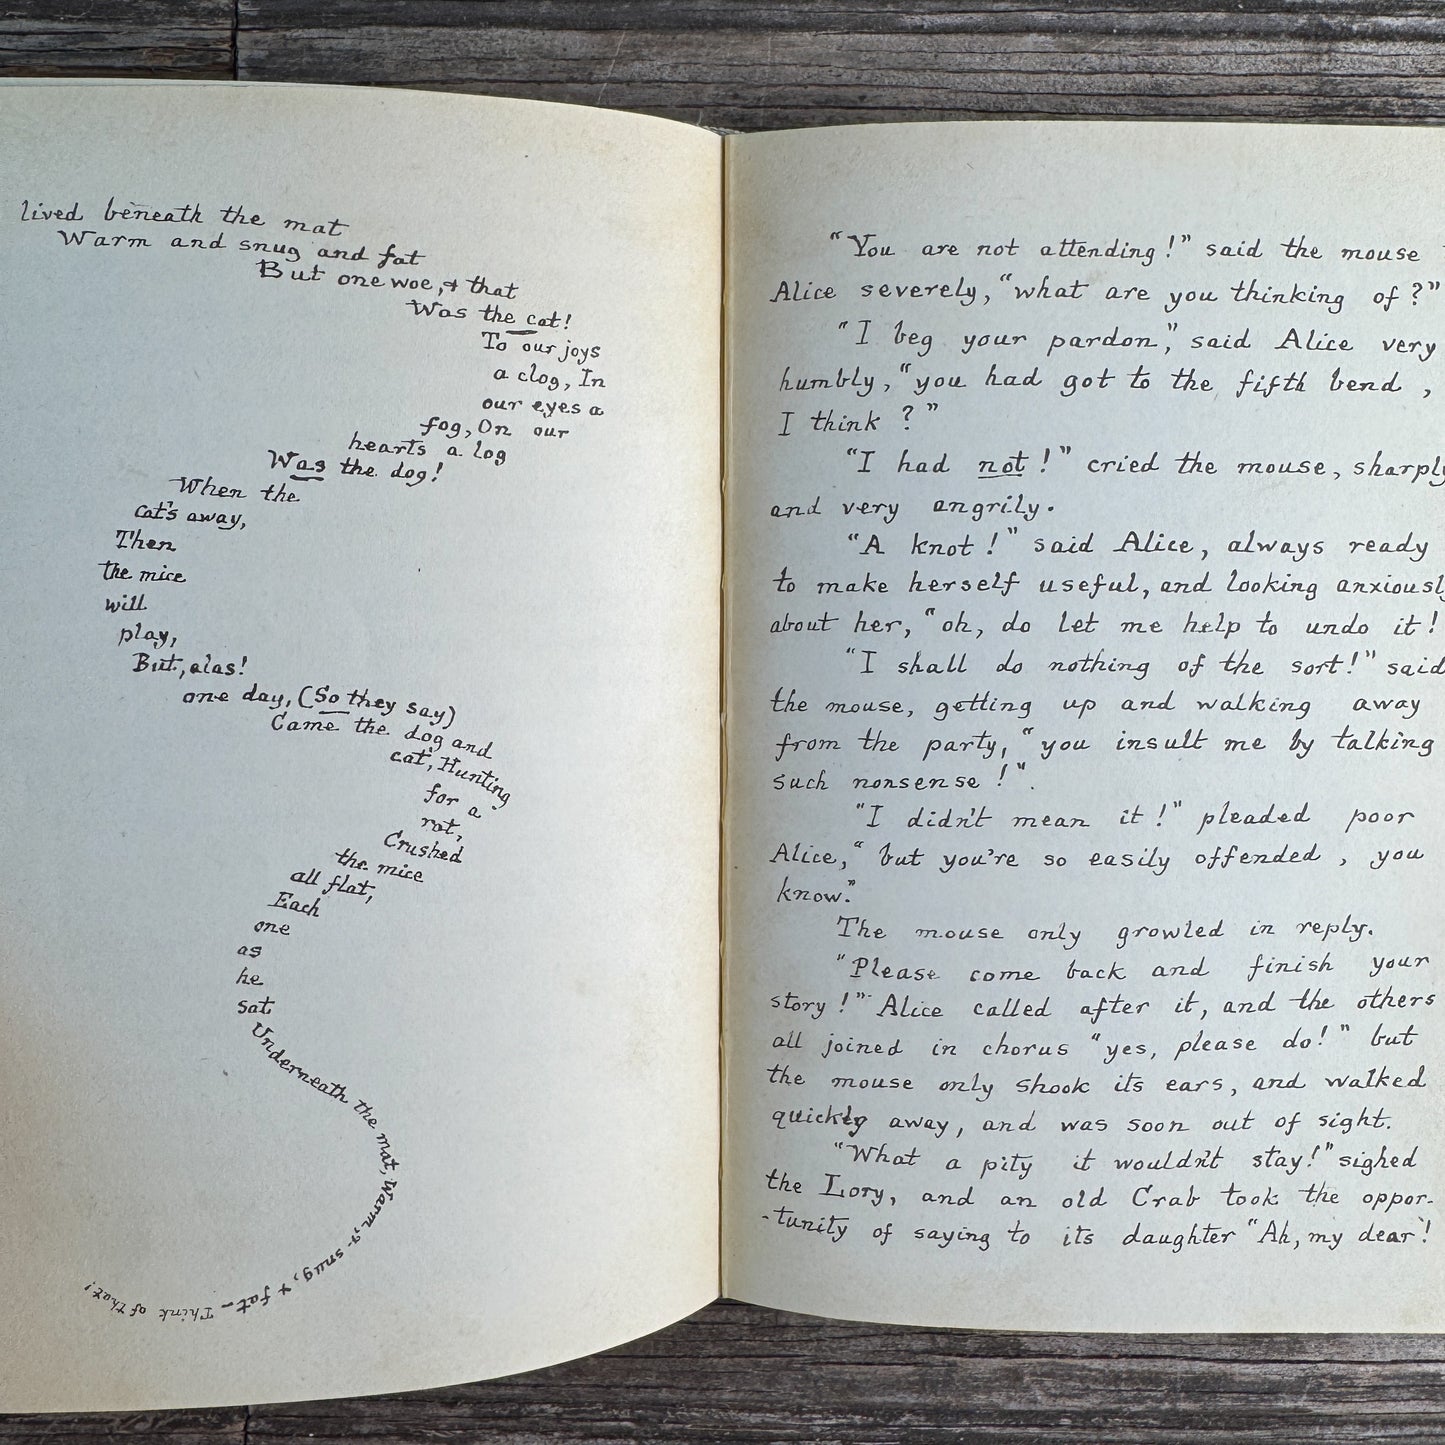 lived beneath the mat
Warm and snug and fat
But one woe, & that
Was the cat!
To our joys
a clog, In
our eyes a
fog, On our
hearts a log
Was the dog!
When the
cat's away,
Then
the mice
will
play,
But, alas!
one day, (So they say)
Came the dog and
cat, Hunting
for a
rat,
Crushed
the mice
all flat,
Each
one
as
he
sat
Underneath the mat, Warm, & snug, & fat - Think of that!
"You are not attending!" said the mouse
Alice severely, "what are you thinking of?"
"I beg your pardon," said Alice very
humbly, "you had got to the fifth bend,
I think?"
"I had not!" cried the mouse, sharply
and very angrily.
"A knot!" said Alice, always ready
to make herself useful, and looking anxiously
about her, "oh, do let me help to undo it!
"I shall do nothing of the sort!" said
the mouse, getting up and walking away
from the party, "you insult me by talking
such nonsense!".
"I didn't mean it!" pleaded poor
Alice, "but you're so easily offended, you
know."
The mouse only growled in reply.
"Please come back and finish your
story!" Alice called after it, and the others
all joined in chorus "yes, please do!" but
the mouse only shook its ears, and walked
quickly away, and was soon out of sight.
"What a pity it wouldn't stay!" sighed
the Lory, and an old Crab took the oppor-
-tunity of saying to its daughter "Ah, my dear!